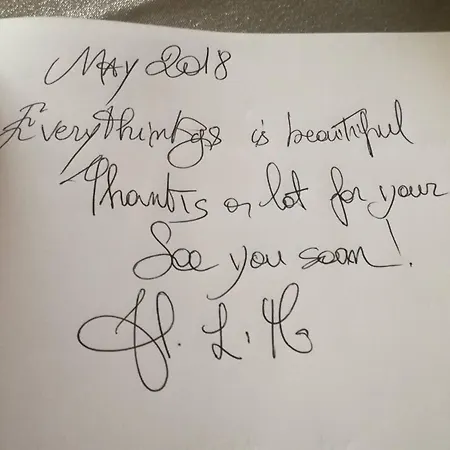 May 2018
Everythings is beautiful
Thanks a lot for your
See you soon!
H. L. M.